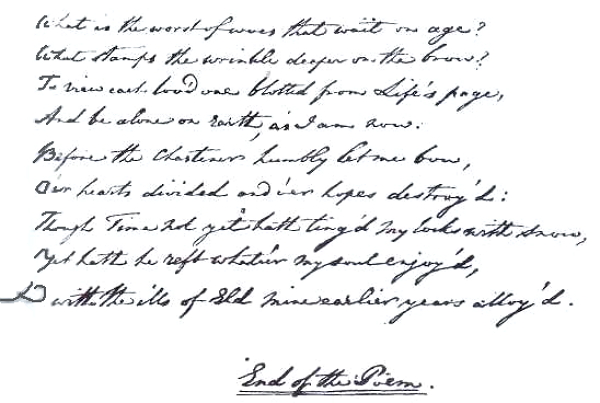 What is the worst of woes that wait on age?
What stamps the wrinkle deeper on the brow?
To view each lov'd one blotted from Life's page,
And be alone on Earth, as I am now:
Before the Chastener humbly let me bow,
O'er hearts divided and o'er hopes destroy'd:
Though Time not yet hath ting'd my locks with snow,
Yet hath he reft whate'er my soul enjoy'd,
with the ills of Eld mine earlier years alloy'd.
End of the Poem.